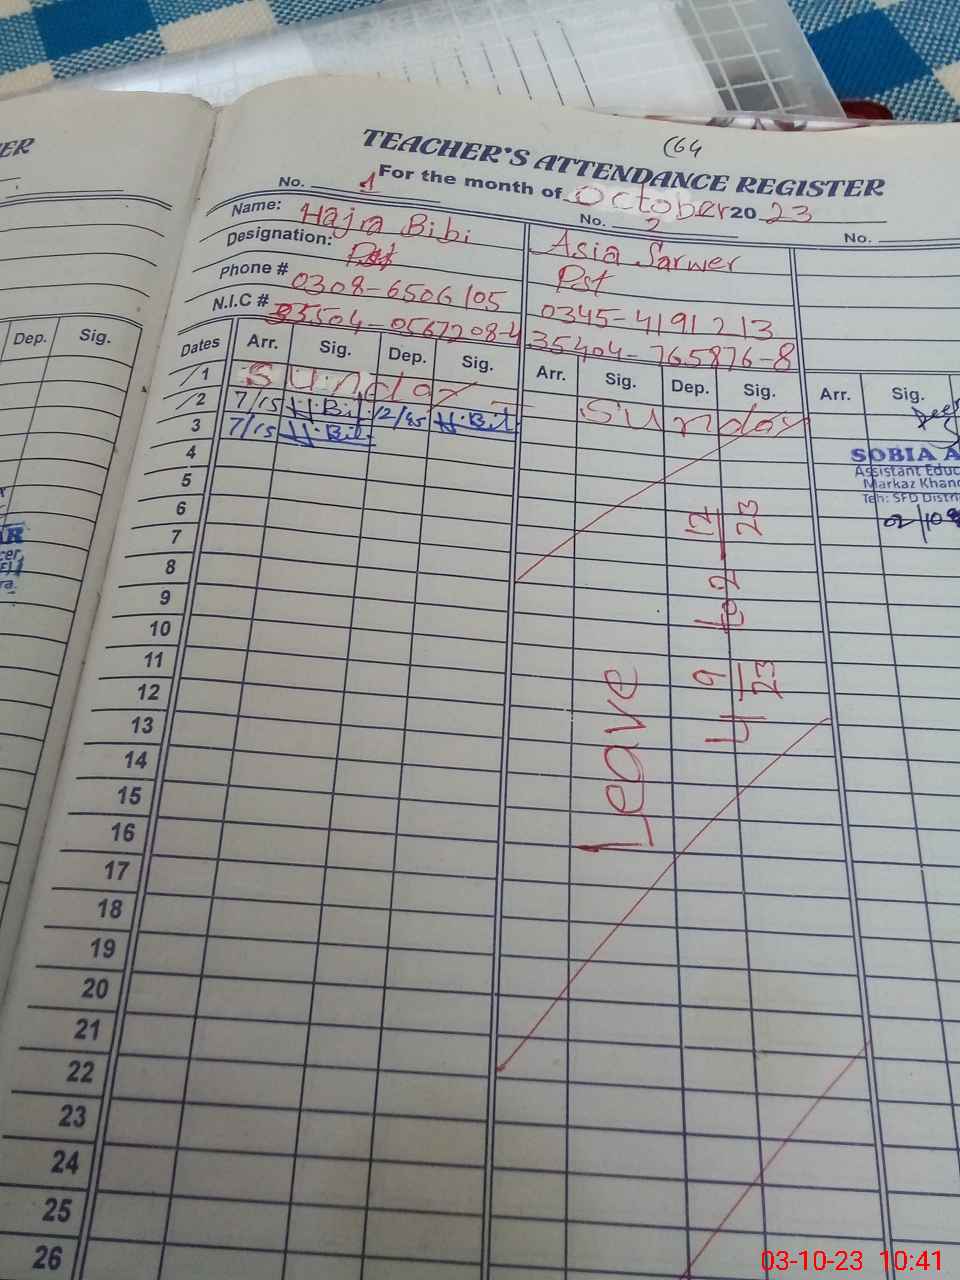 ER
(64
TEACHER'S ATTENDANCE REGISTER
For the month of October 2023
No. 1
No. 2
No.
Name: Hajra Bibi
Asia Sarwer
Designation: Pst
Pst
Phone # 0308-6506105
0345-4191213
N.I.C # 35504-0567208-4
35404-765876-8
Dep. Sig.
Dates Arr. Sig. Dep. Sig. Arr. Sig. Dep. Sig. Arr. Sig.
1 Sunday Sunday
2 7/15 H.Bibi 12/45 H.Bibi
3 7/15 H.Bibi
4
5
6
7
8
9
10
11
12
13
14
15
16
17
18
19
20
21
22
23
24
25
26
Leave
4 9/23 to 2 12/23
SOBIA A
Assistant Educ
Markaz Khan
Teh: SFD Distri
02/10
AR
cer
ra.
03-10-23 10:41